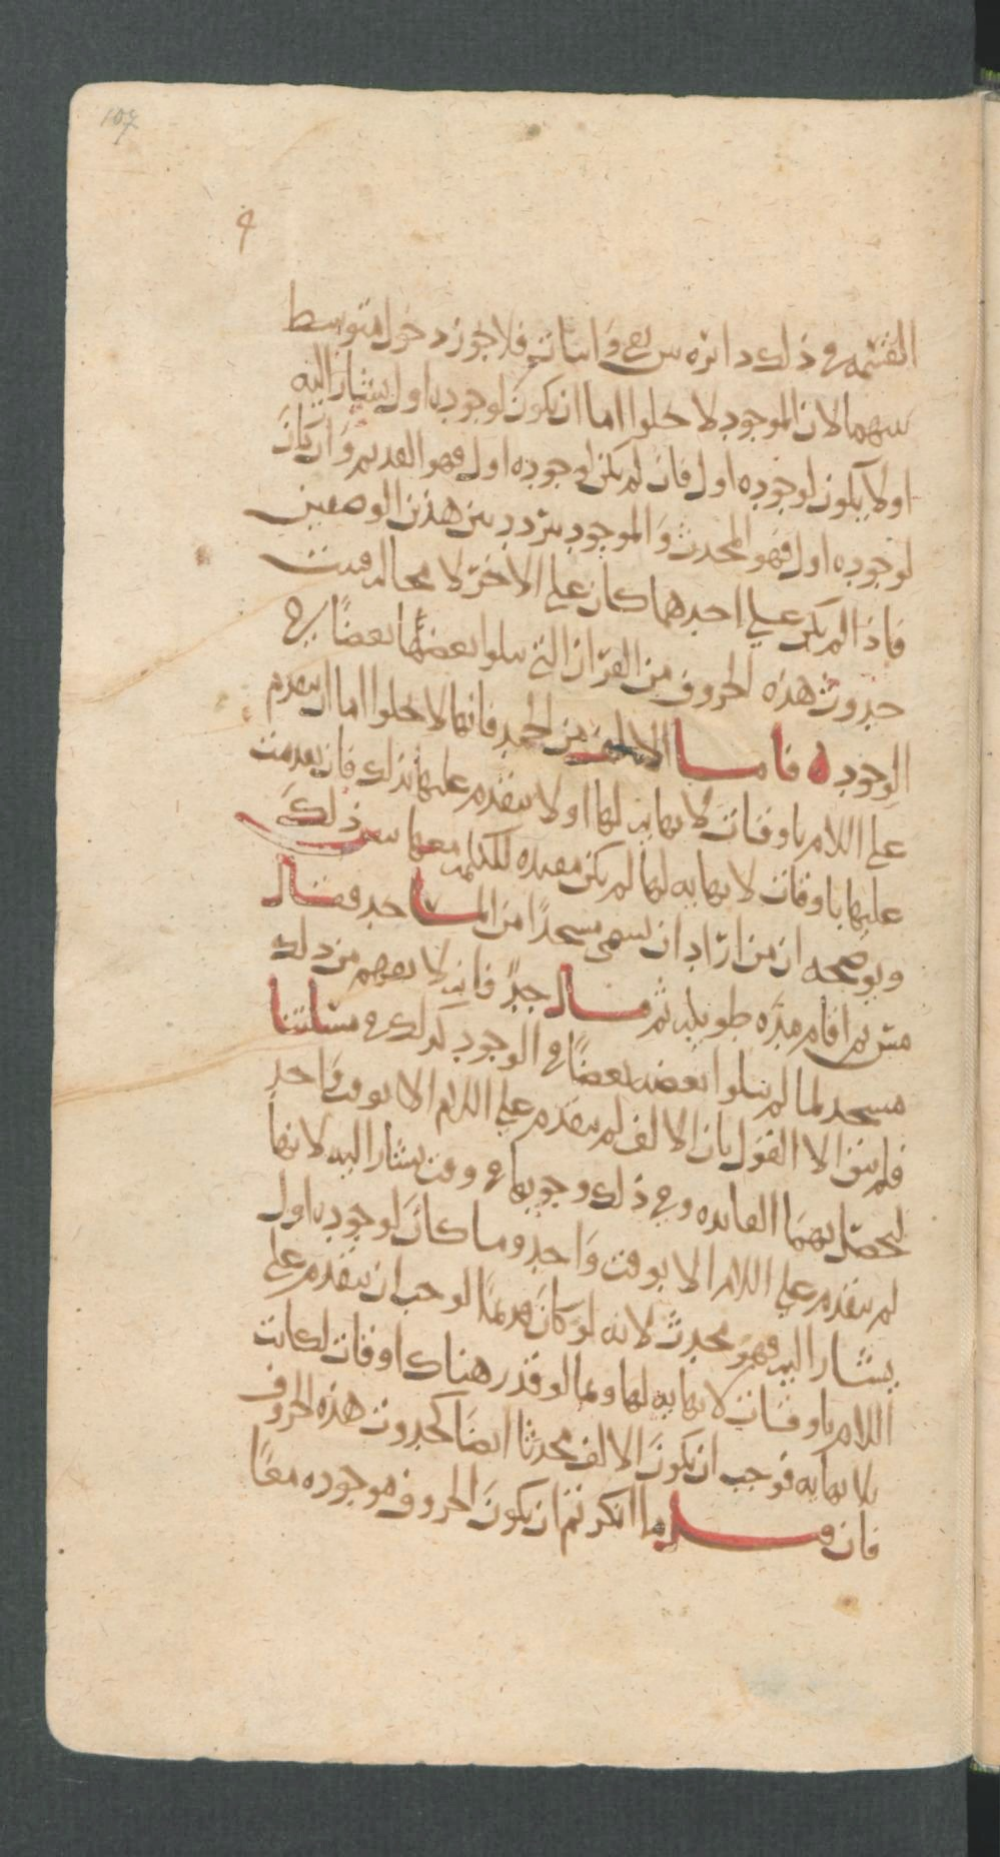 107
القسمه في ذلك دائره بين نفي واثبات فلا يجوز دخول متوسط
بينهما لان الموجود لا يخلوا اما ان يكون لوجوده اول يشار اليه
او لا يكون لوجوده اول فان لم يكن لوجوده اول فهو القديم وان كان
لوجوده اول فهو المحدث والموجود يتردد بين هذين الوصفين
فاذا لم يكن على احدهما كان على الاخر لا محاله فثبت
حدوث هذه الحروف من القران التي يتلوا بعضها بعضا في
الوجود ه فاما الالف من الحمد فانها لا يخلوا اما ان يتقدم
على اللام باوقات لا نهايه لها او لا يتقدم عليها بذلك فان تقدمت
عليها باوقات لا نهايه لها لم يكن مفيده للكلام معها يبين ذلك
ويوضحه ان من اراد ان يسمى مسجدا من المساجد فقال
مس ثم اقام مده طويله ثم قال جد فانه لا يفهم من ذلك
مسجد لما لم يتلوا بعضه بعضا في الوجود كذلك في مسئلتنا
فلم يبق الا القول بان الالف لم يتقدم على اللام الا بوقت واحد
ليحصل بهما الفائده وفي ذلك وجودها في وقت يشار اليه لانها
لم يتقدم على اللام الا بوقت واحد وما كان لوجوده اول
يشار اليه فهو محدث لانه لو كان قديما لوجب ان يتقدم على
اللام باوقات لا نهايه لها ومما لو قدر هناك اوقات لكانت
بلا نهايه فوجب ان يكون الالف محدثا ايضا كحدوث هذه الحروف
فان قيل ما انكرتم ان يكون الحروف موجوده معا